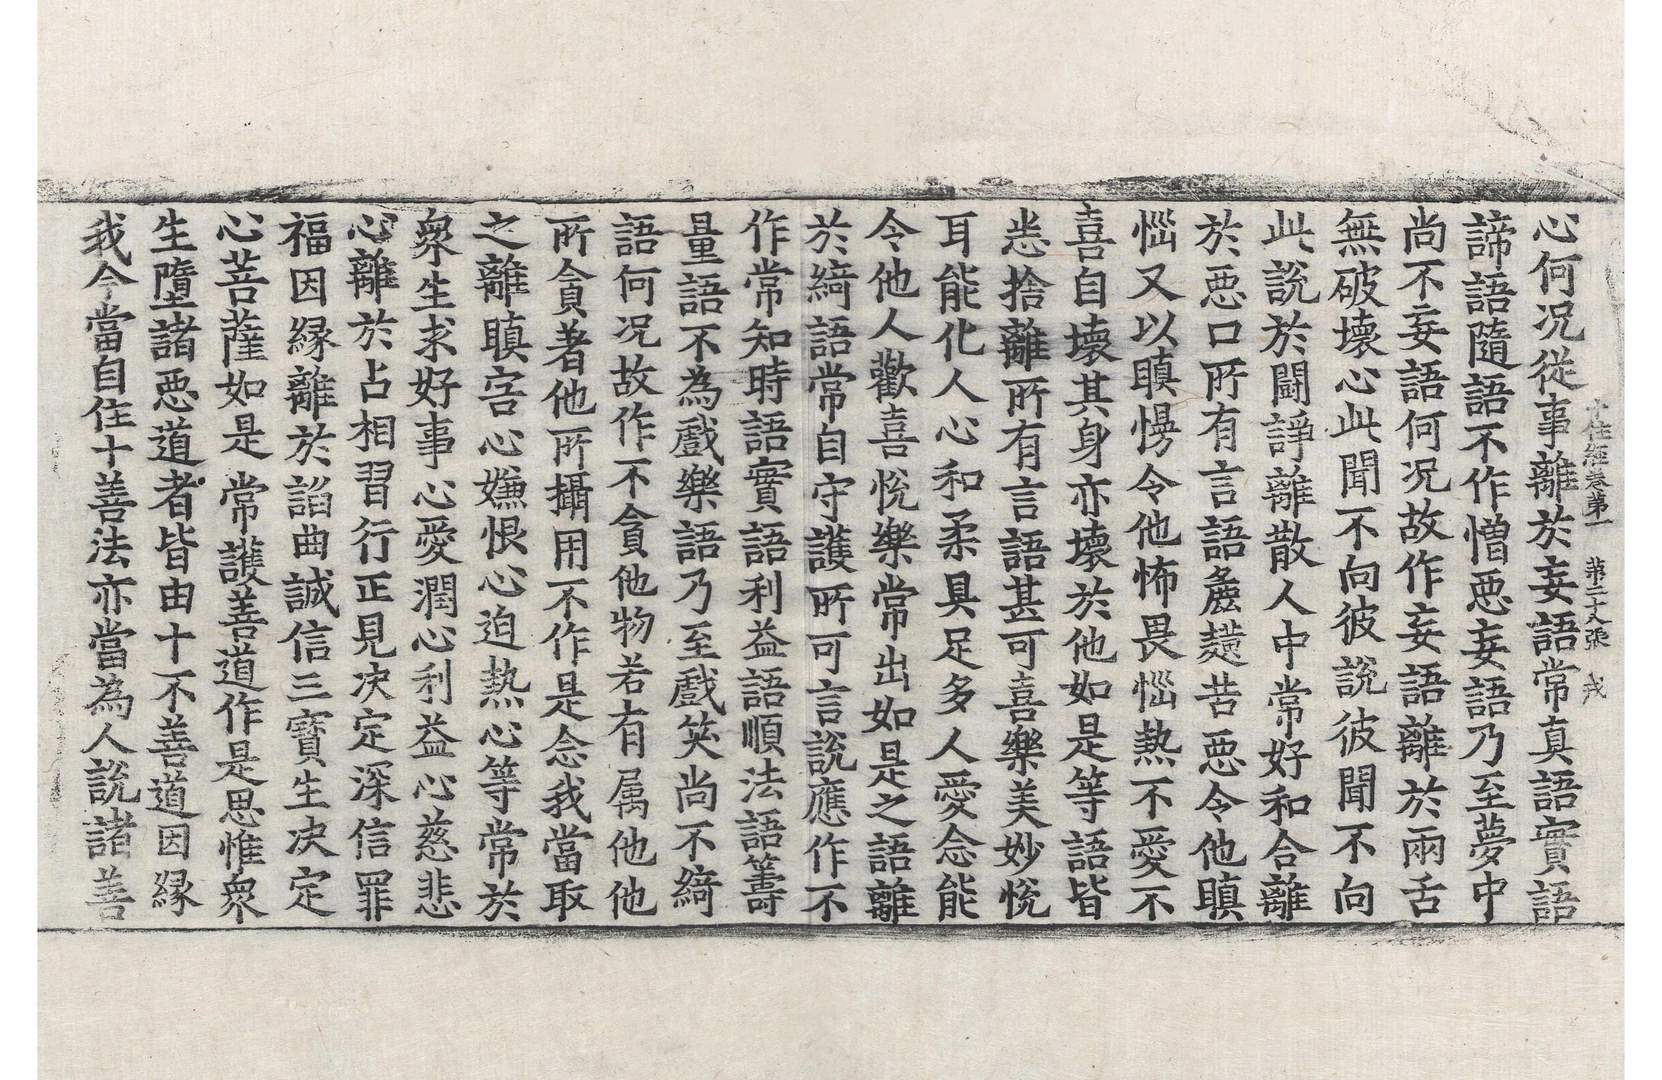 十住經卷第一 第二丈張 戎
心何况從事離於妄語常真語實語
諦語隨語不作憎惡妄語乃至夢中
尚不妄語何况故作妄語離於兩舌
無破壞心此聞不向彼說彼聞不向
此說於鬪諍離散人中常好和合離
於惡口所有言語麁獷苦惡令他瞋
惱又以瞋慢令他怖畏惱熱不愛不
喜自壞其身亦壞於他如是等語皆
悉捨離所有言語甚可喜樂美妙悅
耳能化人心和柔具足多人愛念能
令他人歡喜悅樂常出如是之語離
於綺語常自守護所可言說應作不
作常知時語實語利益語順法語籌
量語不為戲樂語乃至戲笑尚不綺
語何况故作不貪他物若有属他他
所貪著他所攝用不作是念我當取
之離瞋害心嫌恨心迫熱心等常於
衆生求好事心愛潤心利益心慈悲
心離於占相習行正見决定深信罪
福因緣離於諂曲誠信三寶生决定
心菩薩如是常護善道作是思惟衆
生墮諸惡道者皆由十不善道因緣
我今當自住十善法亦當為人說諸善